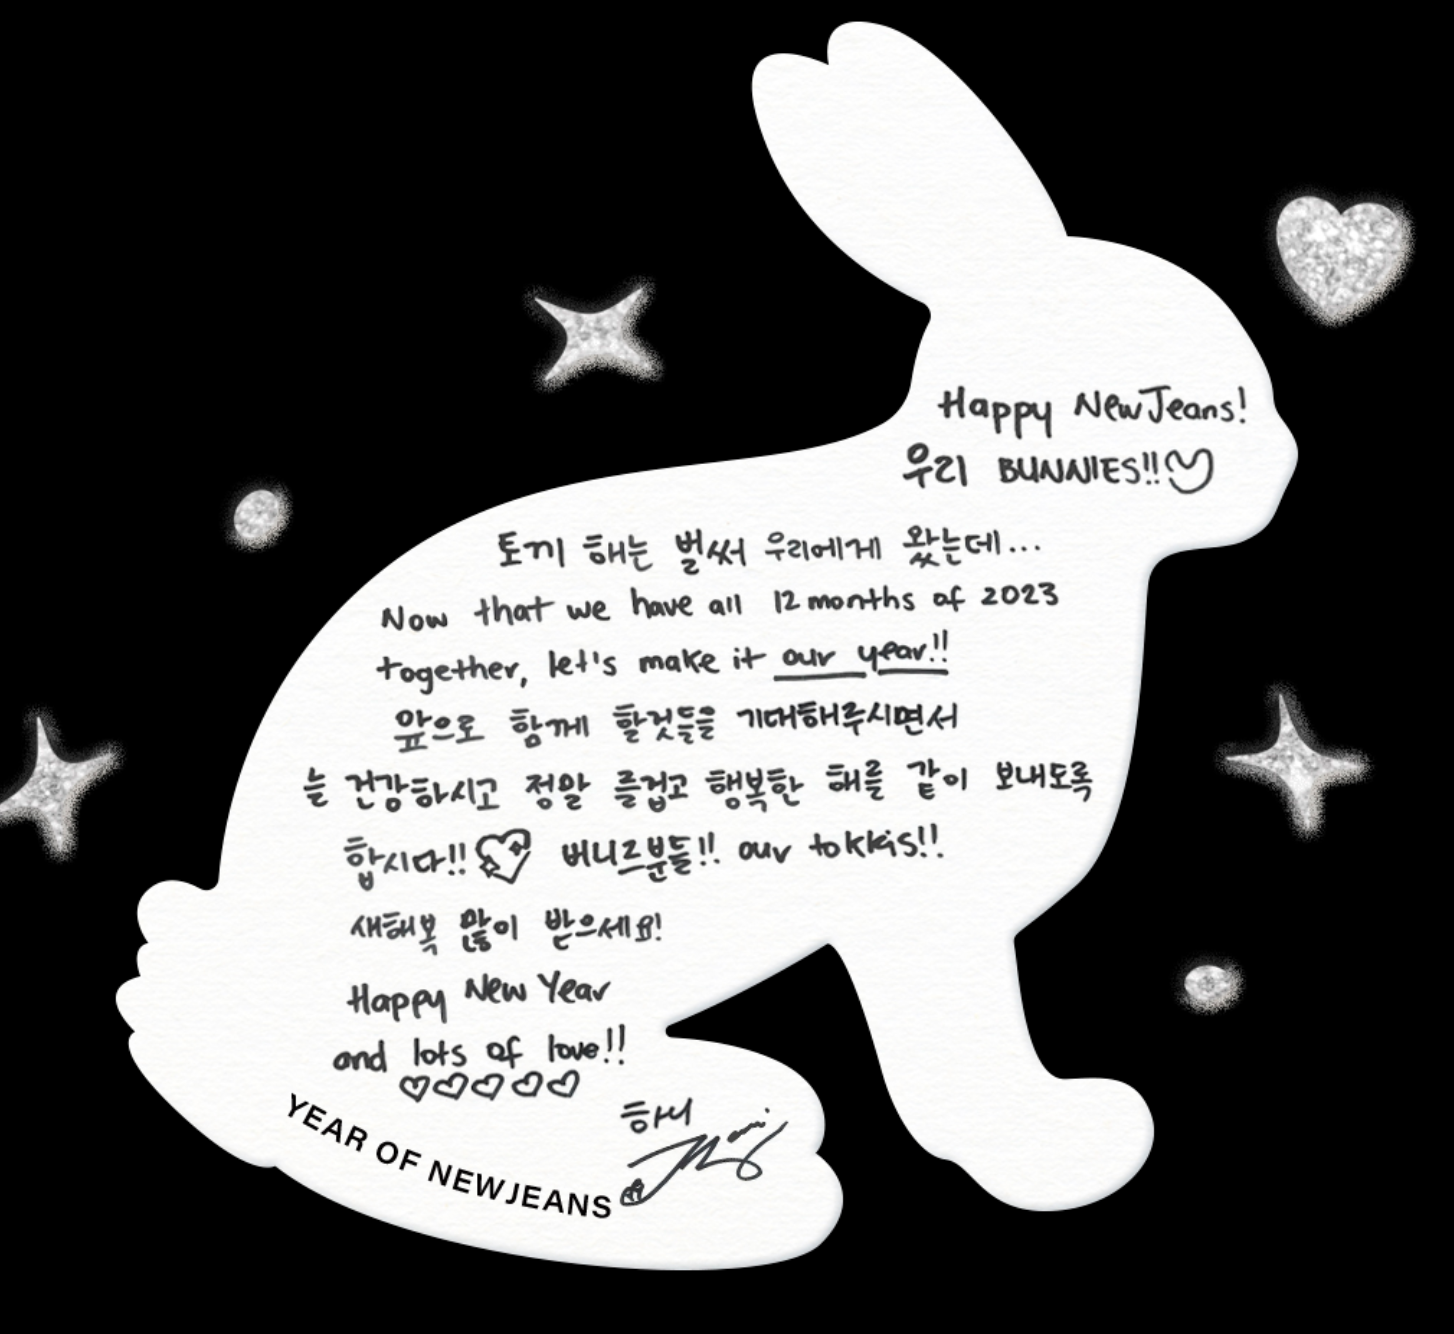 Happy NewJeans!
우리 BUNNIES!!
토끼 해는 벌써 우리에게 왔는데...
Now that we have all 12 months of 2023
together, let's make it our year!!
앞으로 함께 할것들을 기대해주시면서
늘 건강하시고 정말 즐겁고 행복한 해를 같이 보내도록
합시다!! 버니즈분들!! our tokkis!!
새해복 많이 받으세요!
Happy New Year
and lots of love!!
♡♡♡♡♡
하니
Hanni
YEAR OF NEWJEANS